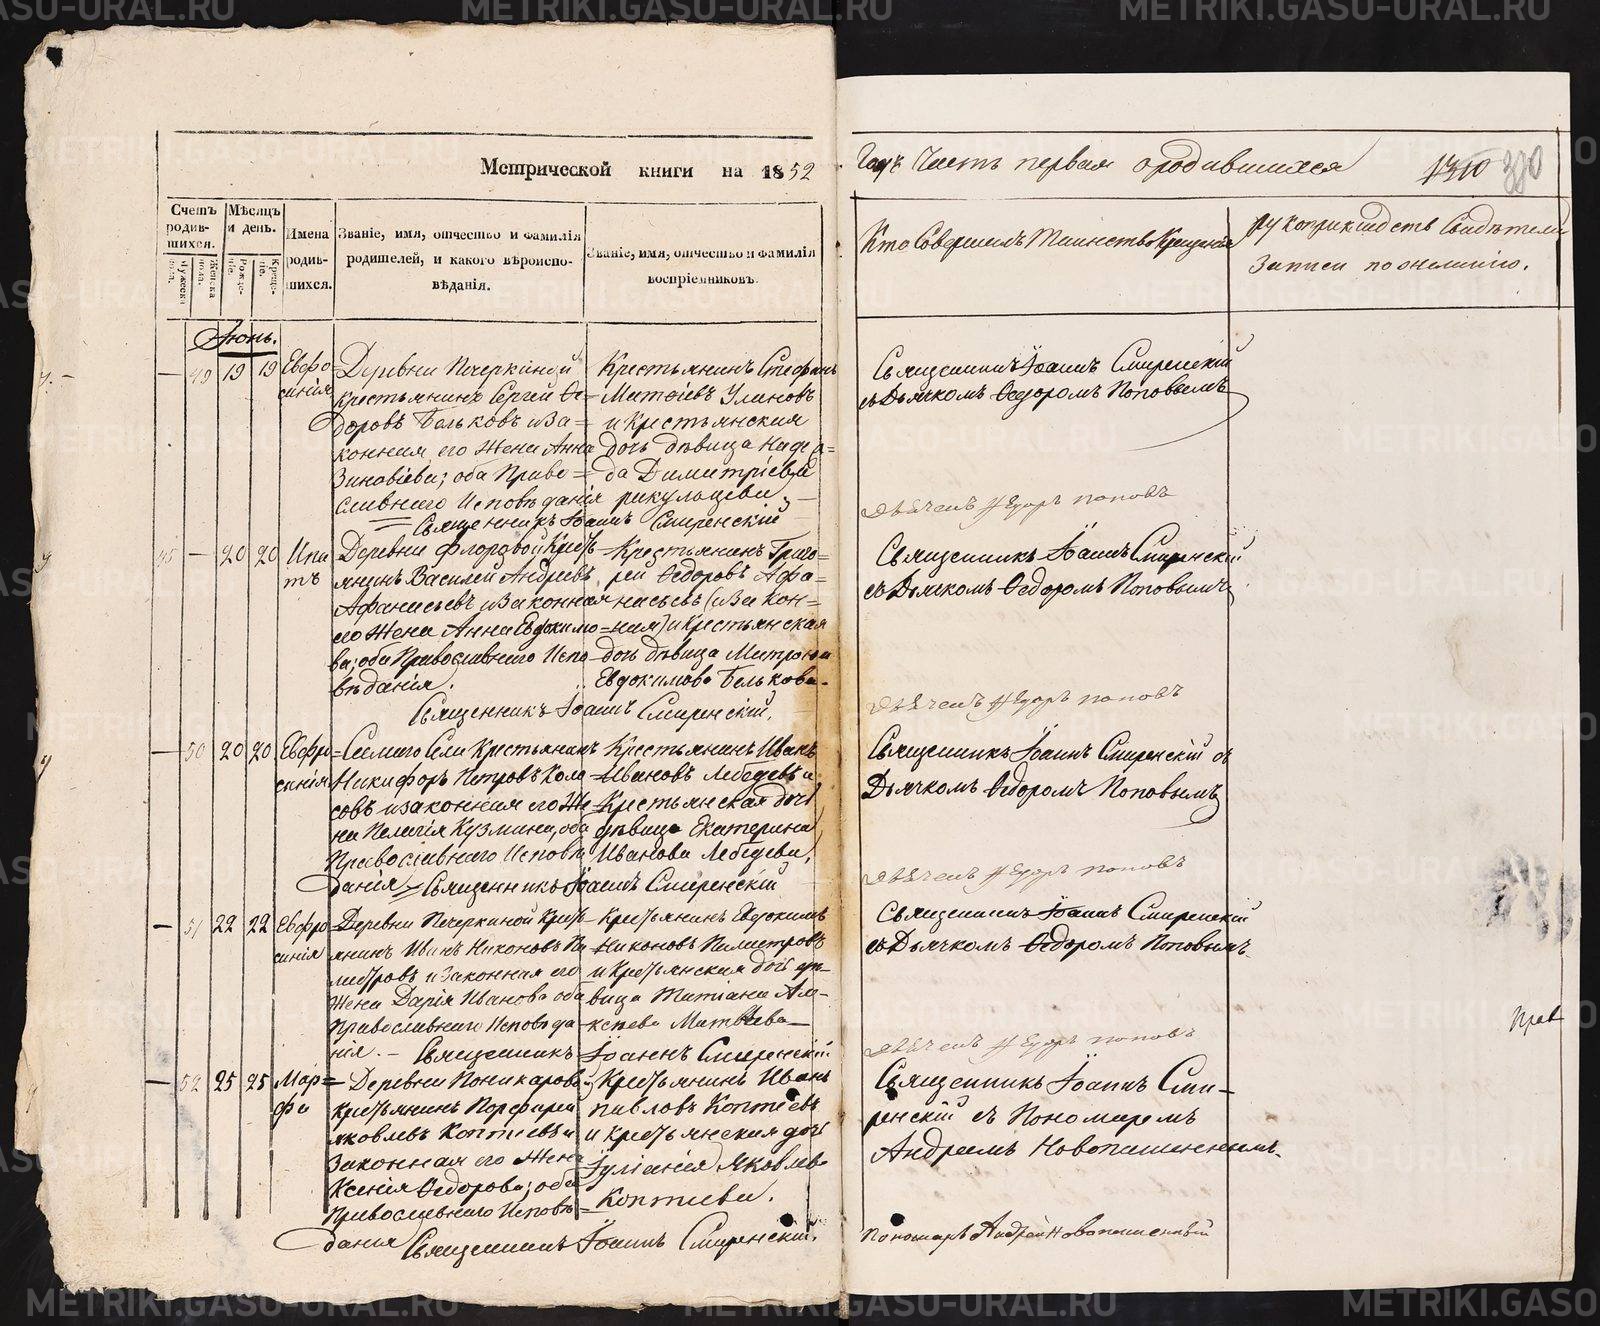 METRIKI.GASU-URAL.RU
Метрической книги на 1852
Года Часть первая о родившихся
1310 380
Счетъ родившихся.
Мѣсяцъ и день.
Имена родившихся.
Званіе, имя, отчество и фамилія родителей, и какого вѣроисповѣданія.
Званіе, имя, отчество и фамилія воспріемниковъ.
Кто совершалъ таинство крещенія
Рукоприкладство свидѣтелей записи по желанію.
Мужеска пола. Женска пола. Рожденіе. Крещеніе.
Іюнь.
49 19 19 Евфросинія
Деревни Печеркиной
крестьянинъ Сергей Ѳе=
доровъ Бельковъ и за=
конная его жена Анна
Зиновіева; оба Право=
славнаго Исповѣданія
Священникъ Іоаннъ Смиренскій
Крестьянинъ Стефанъ
Матѳіевъ Улановъ
и крестьянская
дочь дѣвица Надеж=
да Димитріева
Священникъ Іоаннъ Смиренскій
съ Дьячкомъ Ѳедоромъ Поповымъ
дьячекъ Ѳедоръ поповъ
20 20 Ипатъ
Деревни Фроловой Кресть
янинъ Василей Андреевъ
Афанасьевъ и законная
его жена Анна Евдокимо
ва; оба Православнаго Испо
вѣданія.
Священникъ Іоаннъ Смиренскій.
Крестьянинъ Григо=
рей Ѳедоровъ Афа=
насьевъ
и Крестьянская
дочь дѣвица Матрона
Евдокимова Белькова.
Священникъ Іоаннъ Смиренскій
съ Дьячкомъ Ѳедоромъ Поповымъ
дьячекъ Ѳедоръ поповъ
50 20 20 Евфросинія
Самаго Села Крестьянинъ
Никифоръ Петровъ Коло
совъ и законная его Же
на Пелагія Кузмина, оба
Православнаго Исповѣ
данія Священникъ Іоаннъ Смиренскій
Крестьянинъ Иванъ
Ивановъ Лебедевъ и
Крестьянская дочь
дѣвица Екатерина
Иванова Лебедева,
Священникъ Іоаннъ Смиренскій съ
Дьячкомъ Ѳедоромъ Поповымъ
дьячекъ Ѳедоръ поповъ
51 22 22 Евфросинія
Деревни Печеркиной Кресть
янинъ Иванъ Никоновъ Па
листровъ и законная его
Жена Дарія Иванова оба
Православнаго Исповѣда
нія. Священникъ Іоаннъ Смиренскій
Крестьянинъ Евдокимъ
Никоновъ Палистровъ
и Крестьянская дочь дѣ
вица Татіана Але
ксѣева Матвѣева
Священникъ Іоаннъ Смиренскій
съ Дьячкомъ Ѳедоромъ Поповымъ.
дьячекъ Ѳедоръ поповъ
52 25 25 Марфа
Деревни Поникаровой
крестьянинъ Порфирей
Яковлевъ Коптяевъ и
Законная его Жена
Ксенія Ѳедорова; оба
Православнаго Исповѣ=
данія Священникъ Іоаннъ Смиренскій.
Крестьянинъ Иванъ
Павловъ Коптяевъ
и крестьянская дочь
Іуліанія Яковлева
Коптяева.
Священникъ Іоаннъ Сми-
ренскій съ Пономаремъ
Андреемъ Новопашеннымъ.
пономарь Андрей Новопашенный
Прав